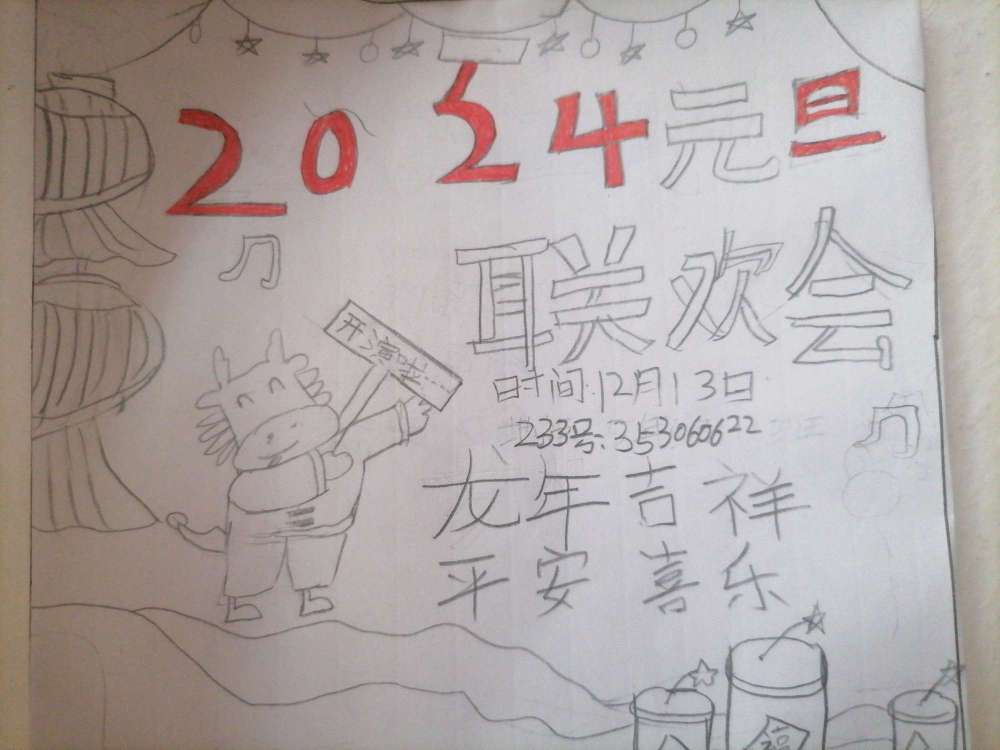 2024元旦
联欢会
开演啦...
时间:12月13日
233号:353060622
龙年吉祥
平安喜乐